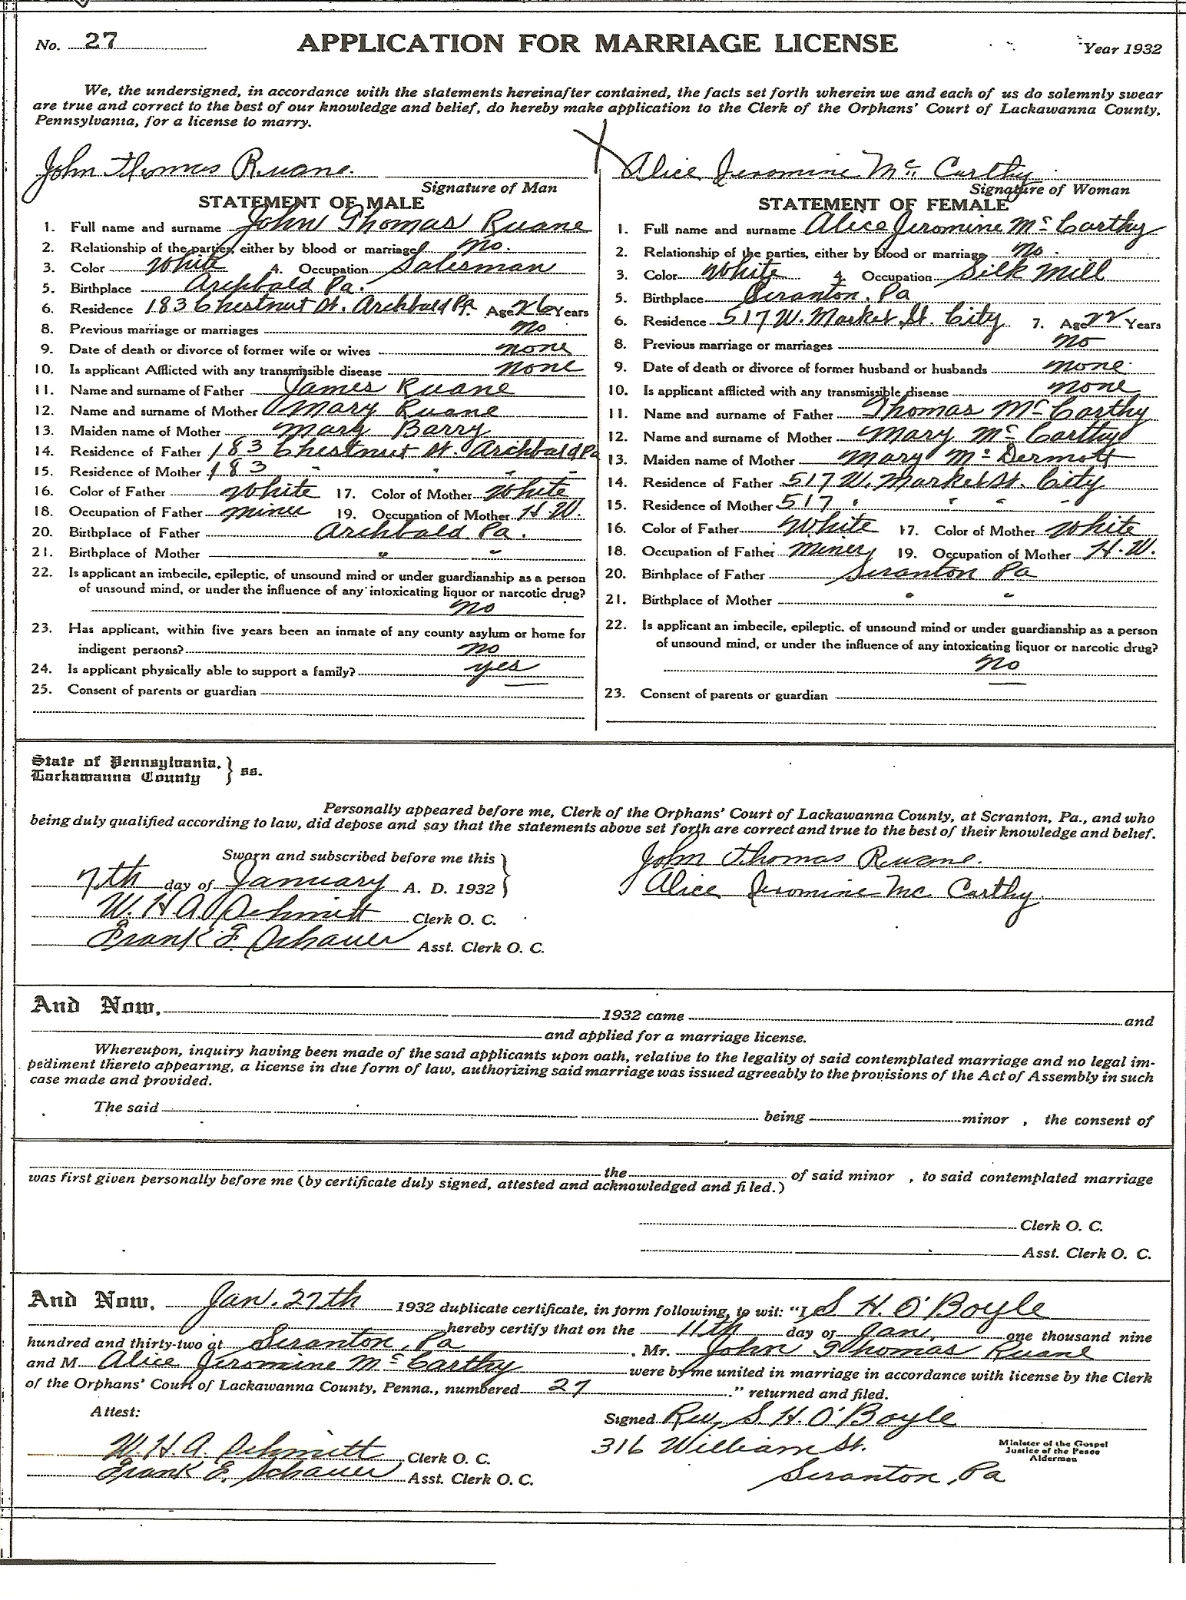 No. 27 APPLICATION FOR MARRIAGE LICENSE Year 1932
We, the undersigned, in accordance with the statements hereinafter contained, the facts set forth wherein we and each of us do solemnly swear
are true and correct to the best of our knowledge and belief, do hereby make application to the Clerk of the Orphans' Court of Lackawanna County,
Pennsylvania, for a license to marry.
John Thomas Ruane
Signature of Man
STATEMENT OF MALE
1. Full name and surname John Thomas Ruane
2. Relationship of the parties, either by blood or marriage no.
3. Color White 4. Occupation Salesman
5. Birthplace Archbald Pa.
6. Residence 183 Chestnut St. Archbald Pa. Age 26 Years
8. Previous marriage or marriages no
9. Date of death or divorce of former wife or wives none
10. Is applicant Afflicted with any transmissible disease none
11. Name and surname of Father James Ruane
12. Name and surname of Mother Mary Ruane
13. Maiden name of Mother Mary Barry
14. Residence of Father 183 Chestnut St. Archbald Pa
15. Residence of Mother 183 " " " "
16. Color of Father White 17. Color of Mother White
18. Occupation of Father miner 19. Occupation of Mother H.W.
20. Birthplace of Father Archbald Pa.
21. Birthplace of Mother " "
22. Is applicant an imbecile, epileptic, of unsound mind or under guardianship as a person
of unsound mind, or under the influence of any intoxicating liquor or narcotic drug?
no
23. Has applicant, within five years been an inmate of any county asylum or home for
indigent persons? no
24. Is applicant physically able to support a family? yes
25. Consent of parents or guardian
Alice Jeromine McCarthy
Signature of Woman
STATEMENT OF FEMALE
1. Full name and surname Alice Jeromine McCarthy
2. Relationship of the parties, either by blood or marriage no
3. Color White 4. Occupation Silk Mill
5. Birthplace Scranton, Pa
6. Residence 517 W. Market St. City 7. Age 22 Years
8. Previous marriage or marriages no
9. Date of death or divorce of former husband or husbands none
10. Is applicant afflicted with any transmissible disease none
11. Name and surname of Father Thomas McCarthy
12. Name and surname of Mother Mary McCarthy
13. Maiden name of Mother Mary McDermott
14. Residence of Father 517 W. Market St. City
15. Residence of Mother 517 " " " "
16. Color of Father White 17. Color of Mother White
18. Occupation of Father Miner 19. Occupation of Mother H.W.
20. Birthplace of Father Scranton Pa
21. Birthplace of Mother " "
22. Is applicant an imbecile, epileptic, of unsound mind or under guardianship as a person
of unsound mind, or under the influence of any intoxicating liquor or narcotic drug?
no
23. Consent of parents or guardian
State of Pennsylvania,
Lackawanna County } ss.
Personally appeared before me, Clerk of the Orphans' Court of Lackawanna County, at Scranton, Pa., and who
being duly qualified according to law, did depose and say that the statements above set forth are correct and true to the best of their knowledge and belief.
Sworn and subscribed before me this
7th day of January A. D. 1932
W. H. A. Schmitt Clerk O. C.
Frank E. Schauer Asst. Clerk O. C.
John Thomas Ruane.
Alice Jeromine McCarthy
And Now, 1932 came and
and applied for a marriage license.
Whereupon, inquiry having been made of the said applicants upon oath, relative to the legality of said contemplated marriage and no legal im-
pediment thereto appearing, a license in due form of law, authorizing said marriage was issued agreeably to the provisions of the Act of Assembly in such
case made and provided.
The said being minor , the consent of
the of said minor , to said contemplated marriage
was first given personally before me (by certificate duly signed, attested and acknowledged and filed.)
Clerk O. C.
Asst. Clerk O. C.
And Now, Jan. 27th 1932 duplicate certificate, in form following, to wit: "I S H. O'Boyle
hereby certify that on the 11th day of Jan. one thousand nine
hundred and thirty-two at Scranton, Pa , Mr. John Thomas Ruane
and M Alice Jeromine McCarthy were by me united in marriage in accordance with license by the Clerk
of the Orphans' Court of Lackawanna County, Penna., numbered 27 " returned and filed.
Attest:
W. H. A. Schmitt Clerk O. C.
Frank E. Schauer Asst. Clerk O. C.
Signed Rev. S. H. O'Boyle
316 William St.
Scranton, Pa
Minister of the Gospel
Justice of the Peace
Alderman